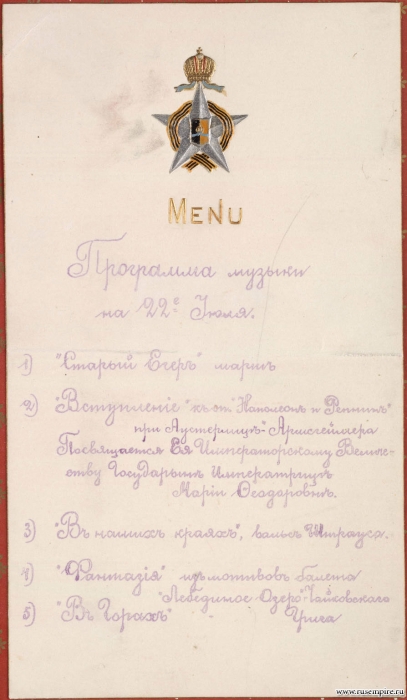 MENU
Программа музыки
на 22е Июля.
1) "Старый Егерь" маршъ
2) "Вступленіе" къ от. "Наполеонъ и
при Аустерлицѣ" Аришгеймера
Посвящается Ея Императорскому Величе-
ству Государынѣ Императрицѣ
Маріи Ѳеодоровнѣ.
3) "Въ нашихъ краяхъ", вальсъ Штрауса.
4) "Фантазія" изъ мотивовъ балета
"Лебединое Озеро" Чайковскаго
5) "Въ Горахъ" - Грига
www.rusempire.ru